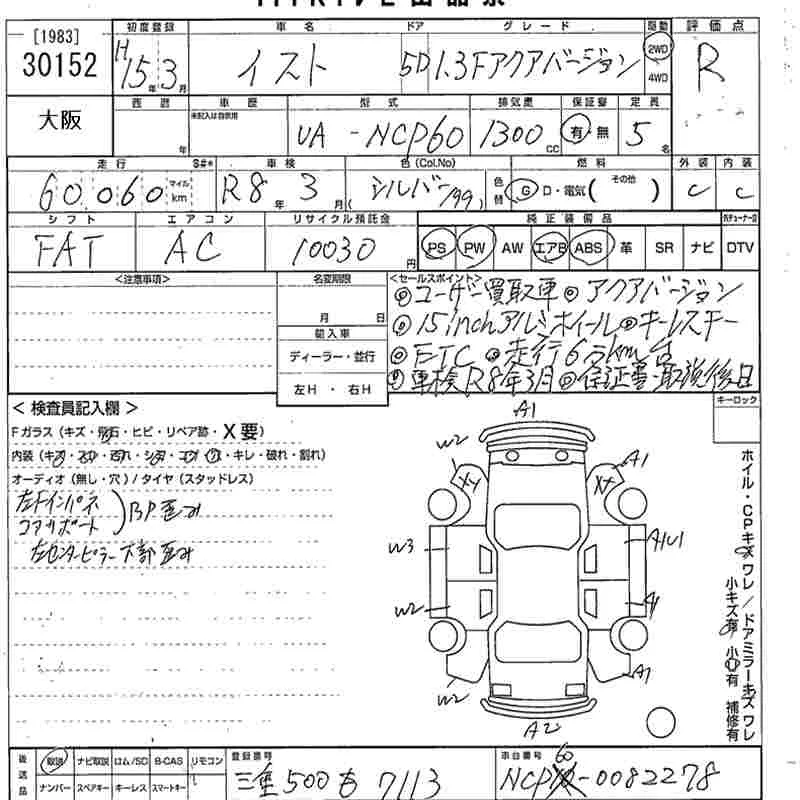 [1983]
30152
初度登録 車名 ドア グレード 駆動 評価点
H15年3月 イスト 5D 1.3Fアクアバージョン 2WD 4WD R
大阪
西暦 車歴 型式 排気量 保証書 定員
年 未記入は自家用 UA-NCP60 1300cc 有・無 5名
走行 S#* 車検 色(Col.No) 燃料 外装 内装
60,060 マイル km R8年3月 (シルバー/99) 色替 G・D・電気( その他 ) C C
シフト エアコン リサイクル預託金 純正装備品
FAT AC 10030円 PS PW AW エアB ABS 革 SR ナビ DTV
<注意事項> 名変期限 <セールスポイント>
月 日
輸入車
ディーラー・並行
左H・右H
◎ユーザー買取車◎アクアバージョン
◎15inchアルミホイール◎キーレスキー
◎ETC◎走行6万km台
◎車検R8年3月◎保証書・取説後日
<検査員記入欄> キーロック
Fガラス(キズ・飛石・ヒビ・リペア跡・X要)
内装(キズ・スレ・汚れ・シミ・コゲ・穴・キレ・破れ・割れ)
オーディオ(無し・穴)/タイヤ(スタッドレス)
左Fインパネ
コアサポート )BP歪み
左センターピラー下部歪み
A1
W2 A1
X
W3 A1U1
W2 A1
W2 A1
A2
ホイル・CPキズワレ/ドアミラーキズワレ
小キズ有 小凹有 補修有
後送品 取説 ナビ取説 ロム/SD B-CAS リモコン
ナンバー スペアキー キーレス スマートキー
登録番号 三重500も7113
車台番号 NCP60-0082278